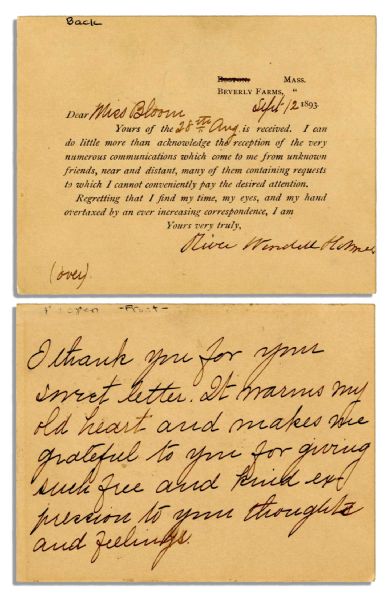 Back
BOSTON, MASS.
BEVERLY FARMS, "
Sept 12 1893.
Dear Miss Bloom
Yours of the 28th Aug is received. I can
do little more than acknowledge the reception of the very
numerous communications which come to me from unknown
friends, near and distant, many of them containing requests
to which I cannot conveniently pay the desired attention.
Regretting that I find my time, my eyes, and my hand
overtaxed by an ever increasing correspondence, I am
Yours very truly,
Oliver Wendell Holmes
(over).
I thank you for your
sweet letter. It warms my
old heart and makes me
grateful to you for giving
such free and kind ex-
pression to your thoughts
and feelings.